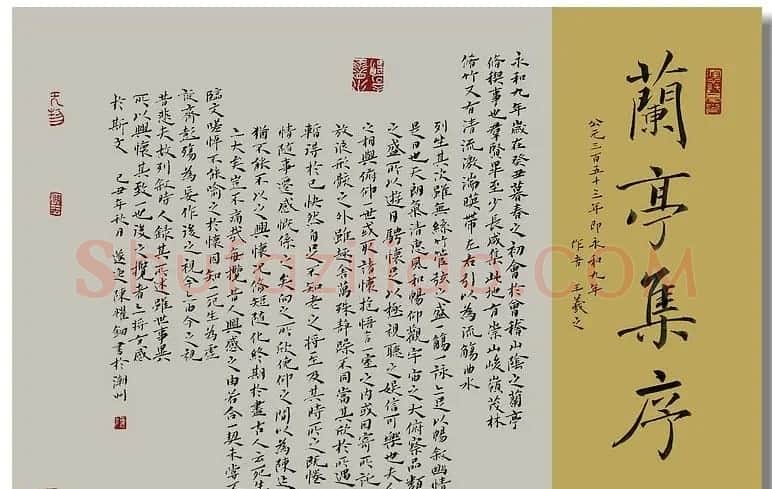 蘭亭集序
公元三百五十三年即永和九年
作者 王羲之
永和九年歲在癸丑暮春之初會於會稽山陰之蘭亭
脩禊事也羣賢畢至少長咸集此地有崇山峻嶺茂林
脩竹又有清流激湍暎帶左右引以為流觴曲水
列坐其次雖無絲竹管弦之盛一觴一詠亦足以暢叙幽情
是日也天朗氣清惠風和暢仰觀宇宙之大俯察品類
之盛所以遊目騁懷足以極視聽之娛信可樂也夫人
之相與俯仰一世或取諸懷抱悟言一室之內或因寄所託
放浪形骸之外雖趣舍萬殊靜躁不同當其欣於所遇
暫得於己快然自足不知老之將至及其所之既惓
情隨事遷感慨係之矣向之所欣俛仰之間以為陳迹
猶不能不以之興懷況脩短隨化終期於盡古人云死生
亦大矣豈不痛哉每攬昔人興感之由若合一契未嘗不
臨文嗟悼不能喻之於懷固知一死生為虛
誕齊彭殤為妄作後之視今亦由今之視
昔悲夫故列叙時人錄其所述雖世事異
所以興懷其致一也後之攬者亦將有感
於斯文 己丑年秋日 陳耀 書於潮州
Shufaziliao.COM